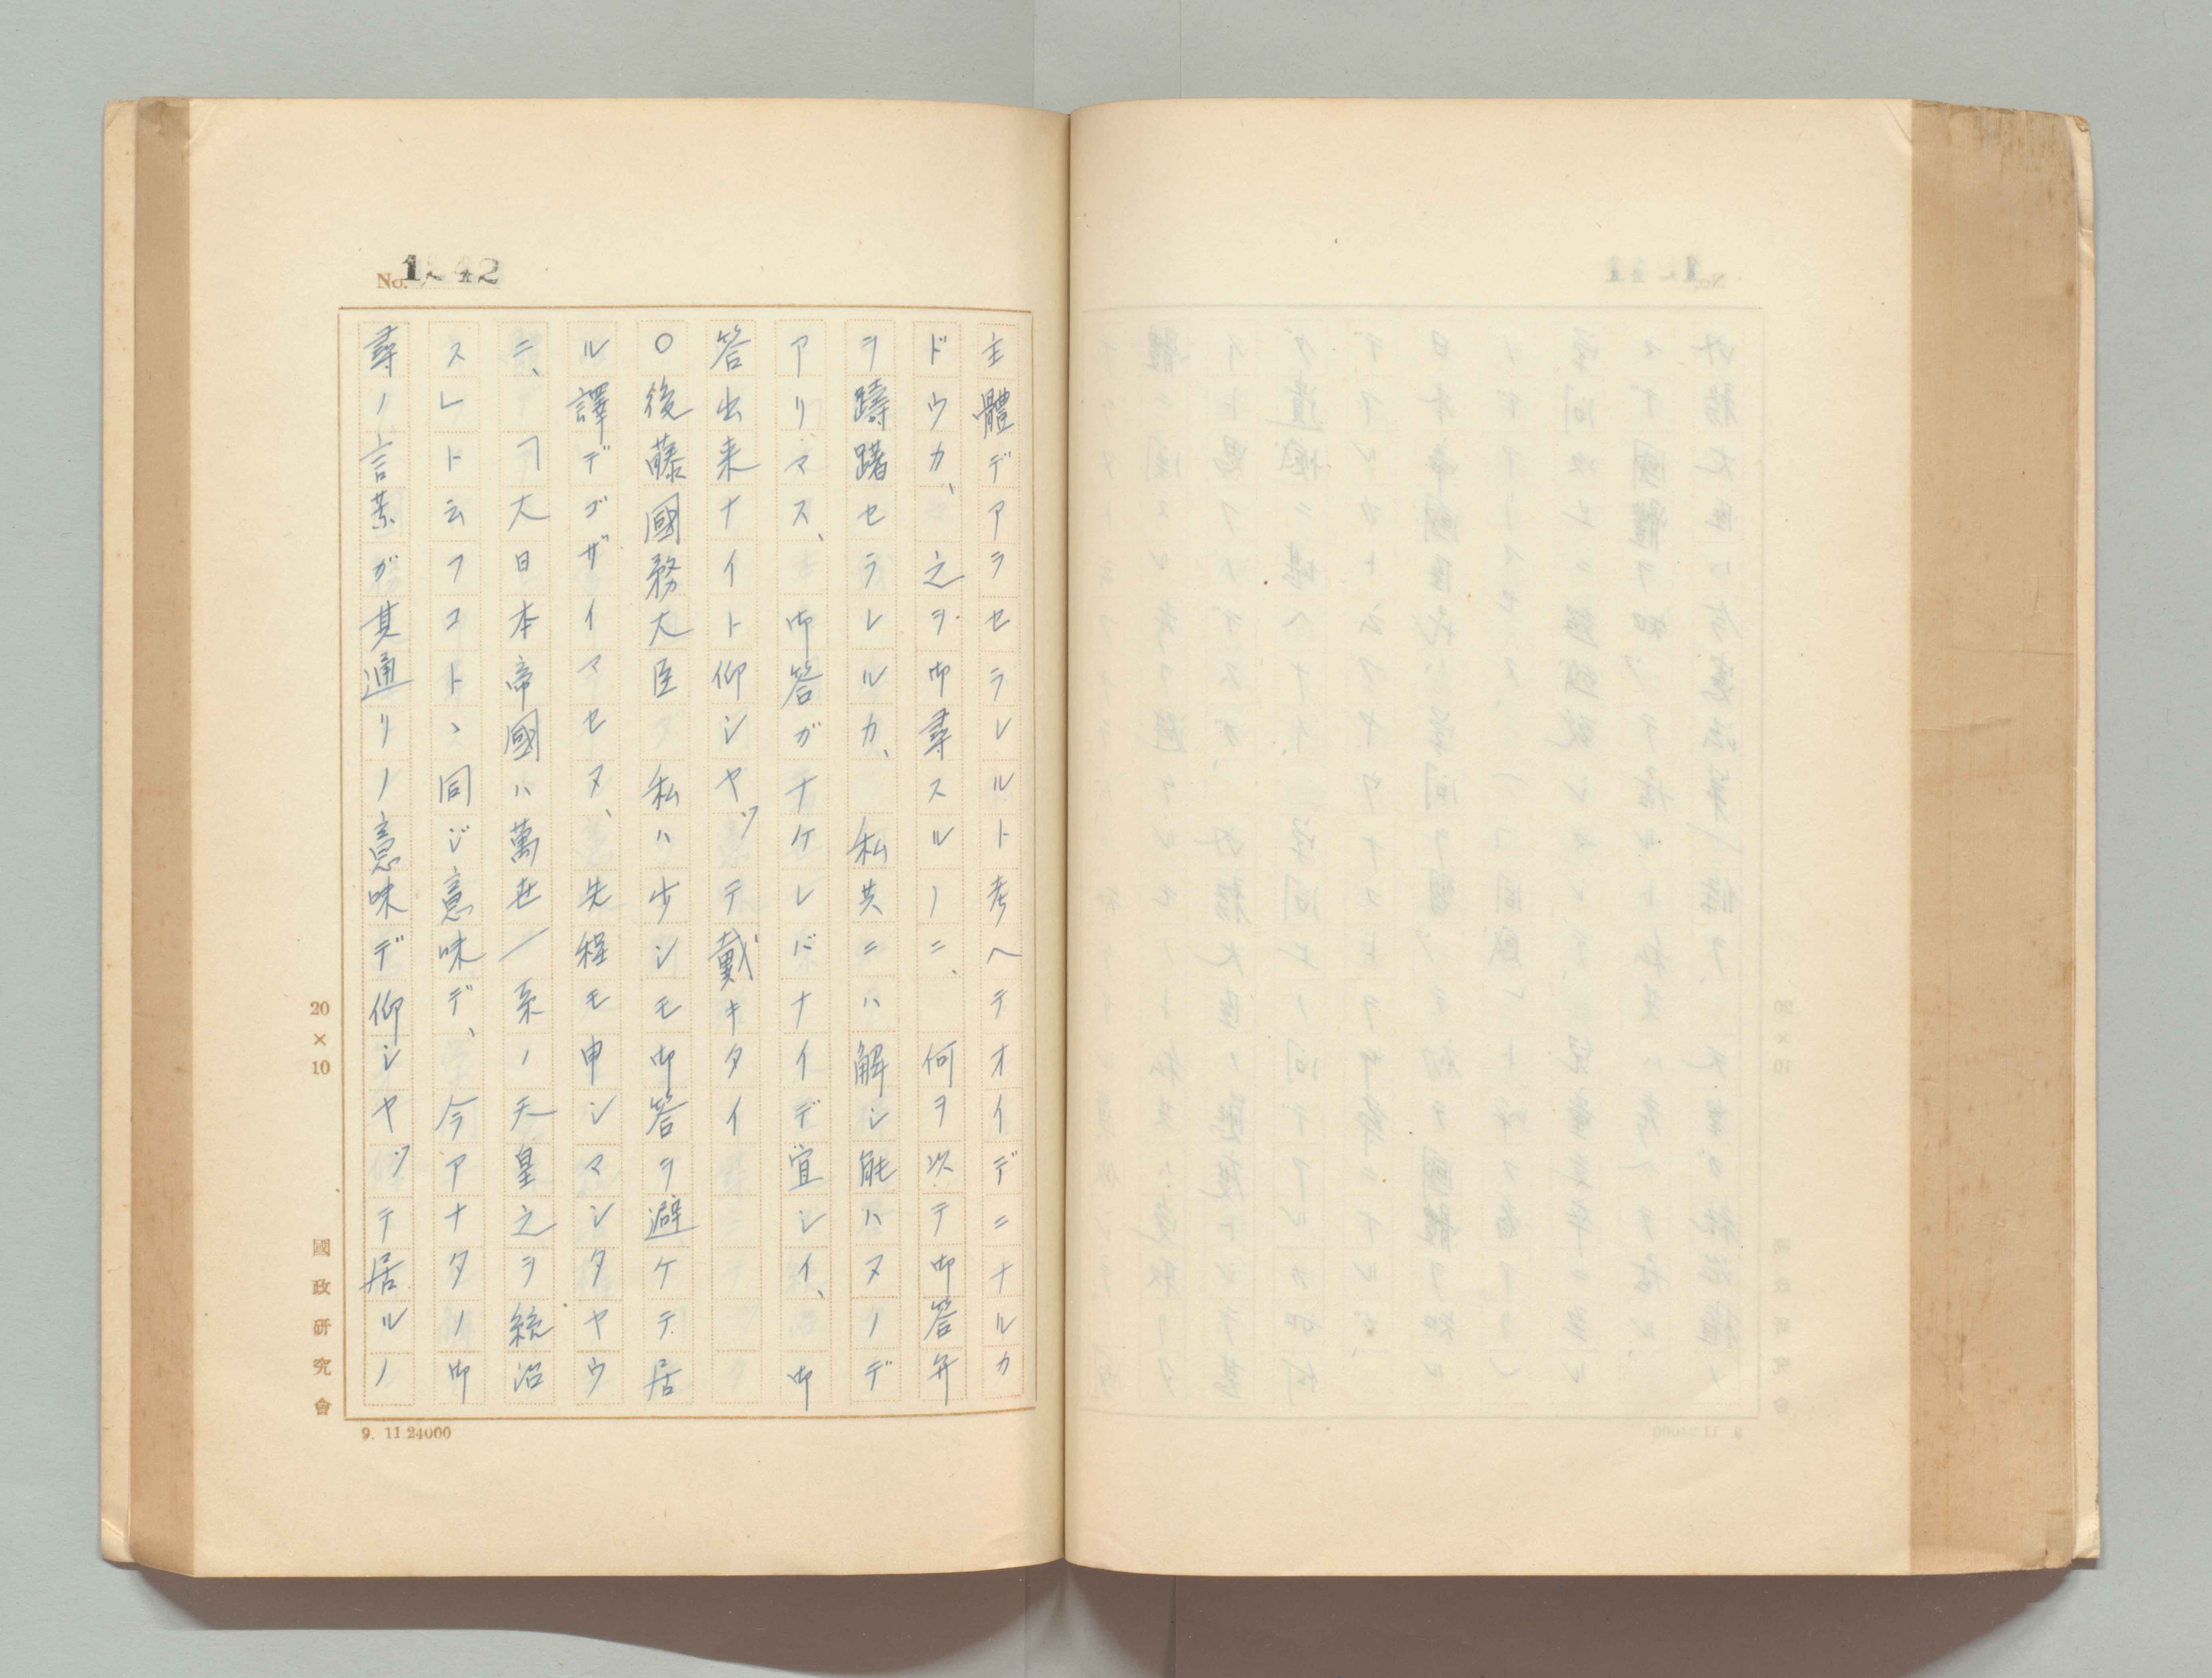 No. 1~42
主體デアラセラレルト考ヘテオイデニナルカ
ドウカ、之ヲ御尋スルノニ、何ヲ以テ御答弁
ヲ躊躇セラレルカ、私共ニハ解シ能ハヌノデ
アリマス、御答ガナケレバナイデ宜シイ、御
答出来ナイト仰シヤツテ戴キタイ
○後藤國務大臣 私ハ少シモ御答ヲ避ケテ居
ル譯デゴザイマセヌ、先程モ申シマシタヤウ
ニ、「大日本帝國ハ萬世一系ノ天皇之ヲ統治
ス」ト云フコトヽ同ジ意味デ、今アナタノ御
尋ノ言葉ガ其通リノ意味デ仰シヤツテ居ルノ
20×10
國政研究會
9. 11.24000